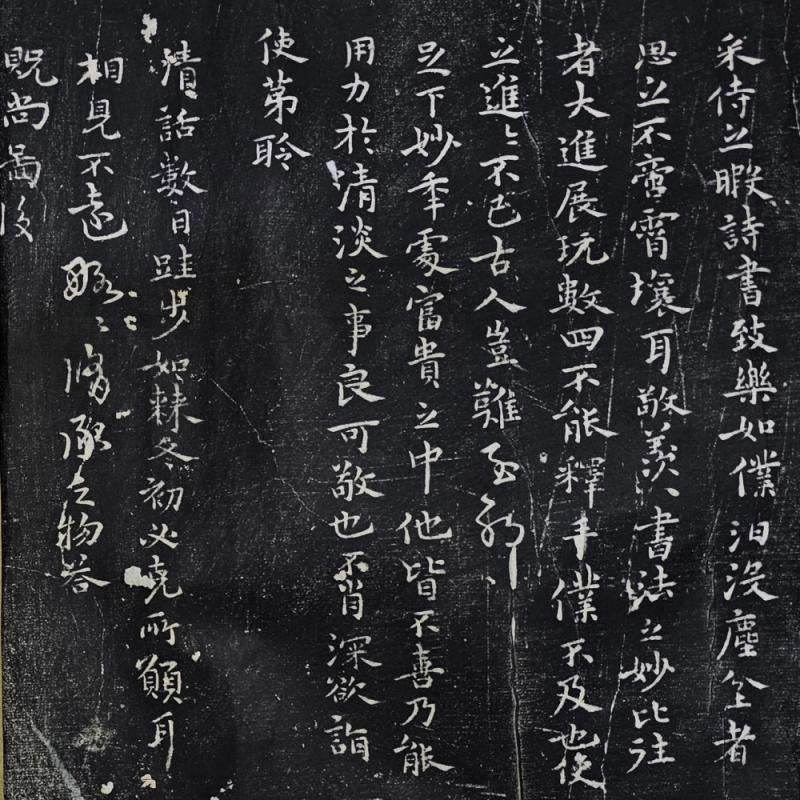 采侍之暇詩書致樂如僕汩没塵坌者
思之不啻霄壤耳敬羡書法之妙比往
者大進展玩數四不能釋手僕不及也使
之進進不已古人豈難到耶
足下妙年處富貴之中他皆不喜乃能
用力於清淡之事良可敬也不肖深欲詣
使茀聆
清話數日跬步如棘冬初必竟所願耳
相見不遠
既尚圖後